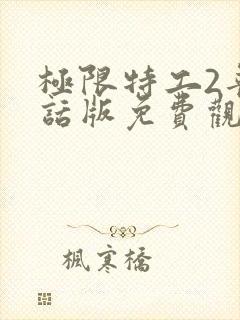 極限特工2
話版免費觀
楓寒橋